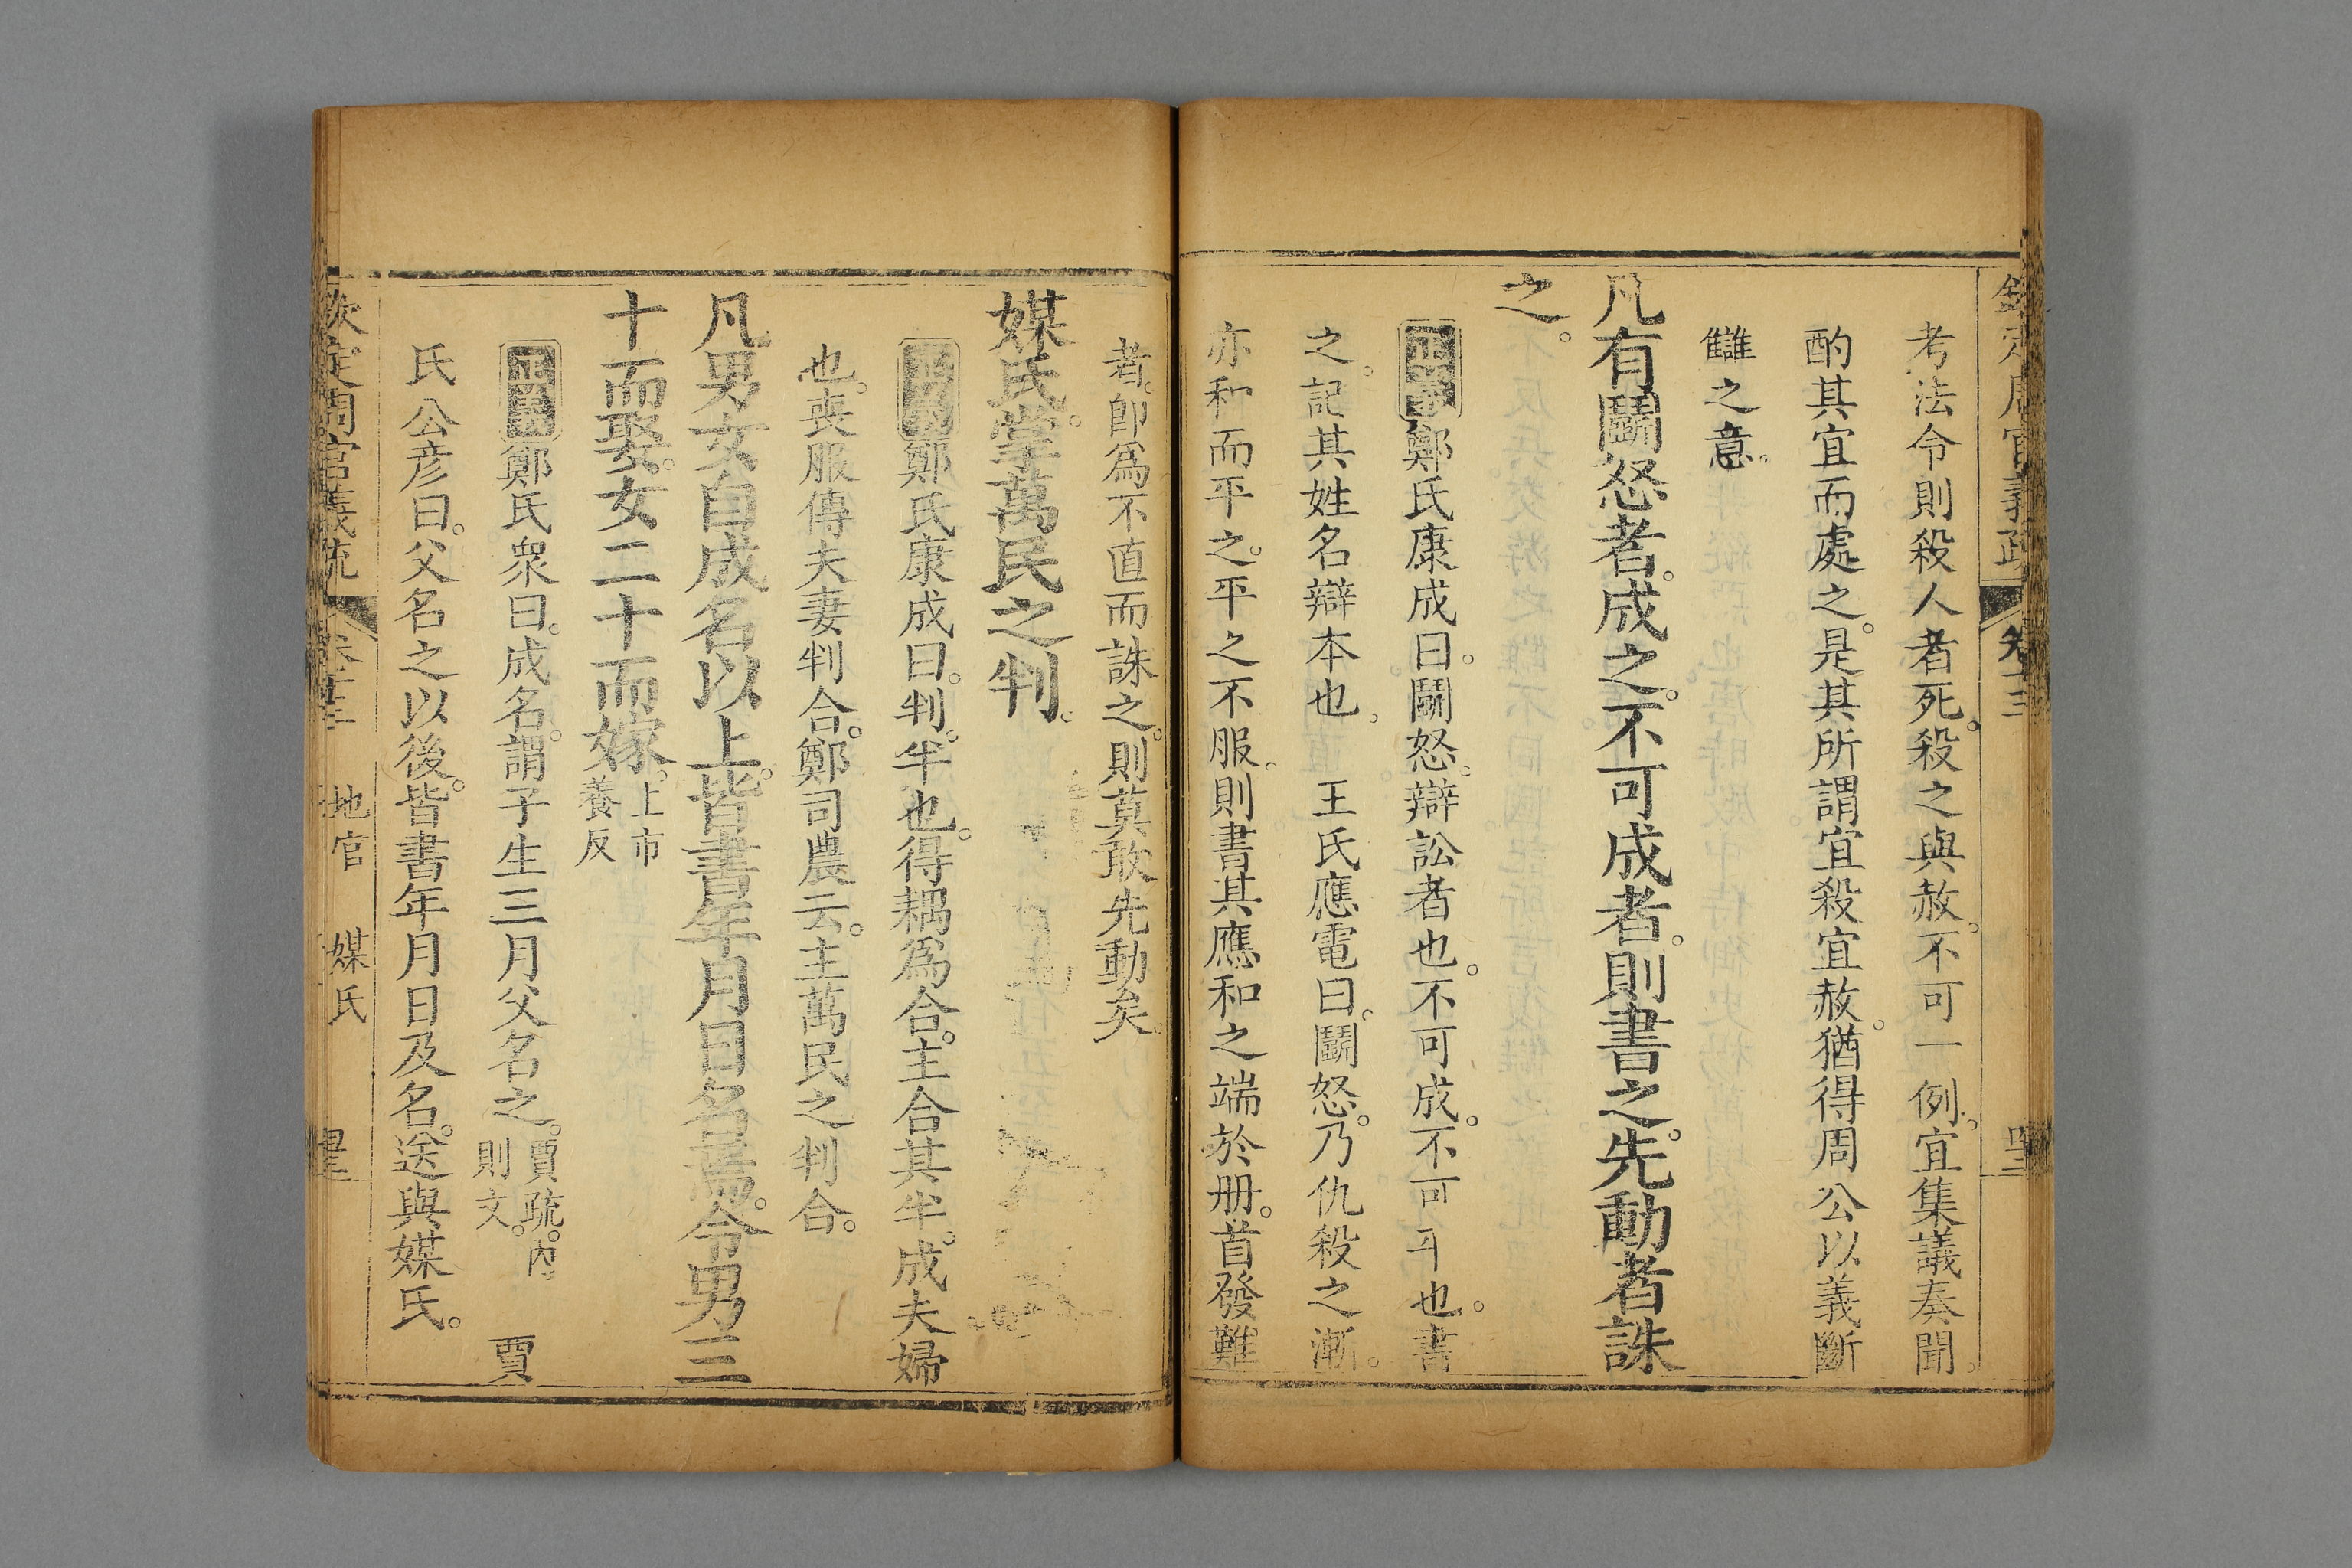 欽定周官義疏 卷十三
考法令則殺人者死。殺之與赦。不可一例。宜集議奏聞。
酌其宜而處之。是其所謂宜殺宜赦。猶得周公以義斷
讎之意。
凡有鬭怒者。成之。不可成者。則書之。先動者誅
之。
正義鄭氏康成曰。鬭怒。辯訟者也。不可成。不可平也。書
之。記其姓名辯本也。 王氏應電曰。鬭怒。乃仇殺之漸。
亦和而平之。平之不服。則書其應和之端於册。首發難
者。卽爲不直而誅之。則莫敢先動矣。
媒氏。掌萬民之判。
正義鄭氏康成曰。判。半也。得耦爲合。主合其半。成夫婦
也。喪服傳夫妻判合。鄭司農云。主萬民之判合。
凡男女自成名以上。皆書年月日名焉。令男三
十而娶。女二十而嫁。上市養反
正義鄭氏衆曰。成名。謂子生三月父名之。賈疏。內則文。 賈
氏公彥曰。父名之以後。皆書年月日及名。送與媒氏。
欽定周官義疏 卷十三 地官 媒氏